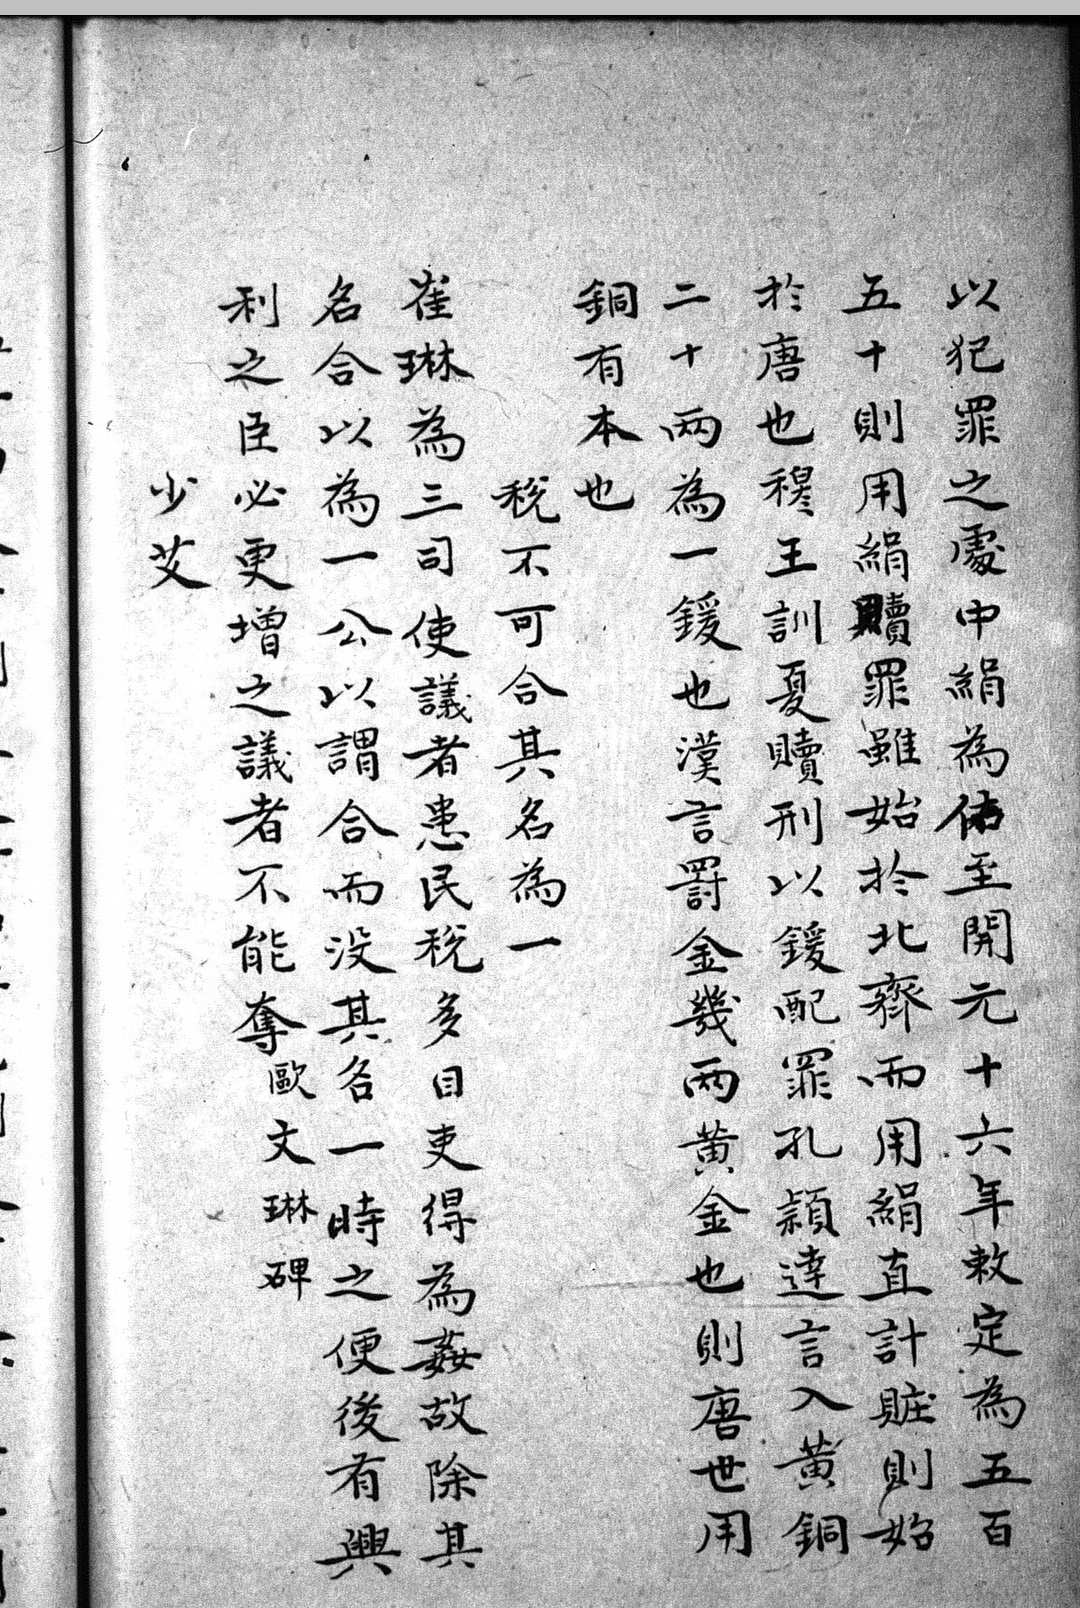 以犯罪之處中絹為估至開元十六年敕定為五百
五十則用絹贖罪雖始於北齊而用絹直計贓則始
於唐也穆王訓夏贖刑以鍰配罪孔頴達言入黃銅
二十兩為一鍰也漢言罰金幾兩黃金也則唐世用
銅有本也
稅不可合其名為一
崔琳為三司使議者患民稅多目吏得為姦故除其
名合以為一公以謂合而没其名一時之便後有興
利之臣必更增之議者不能奪歐文琳碑
少艾